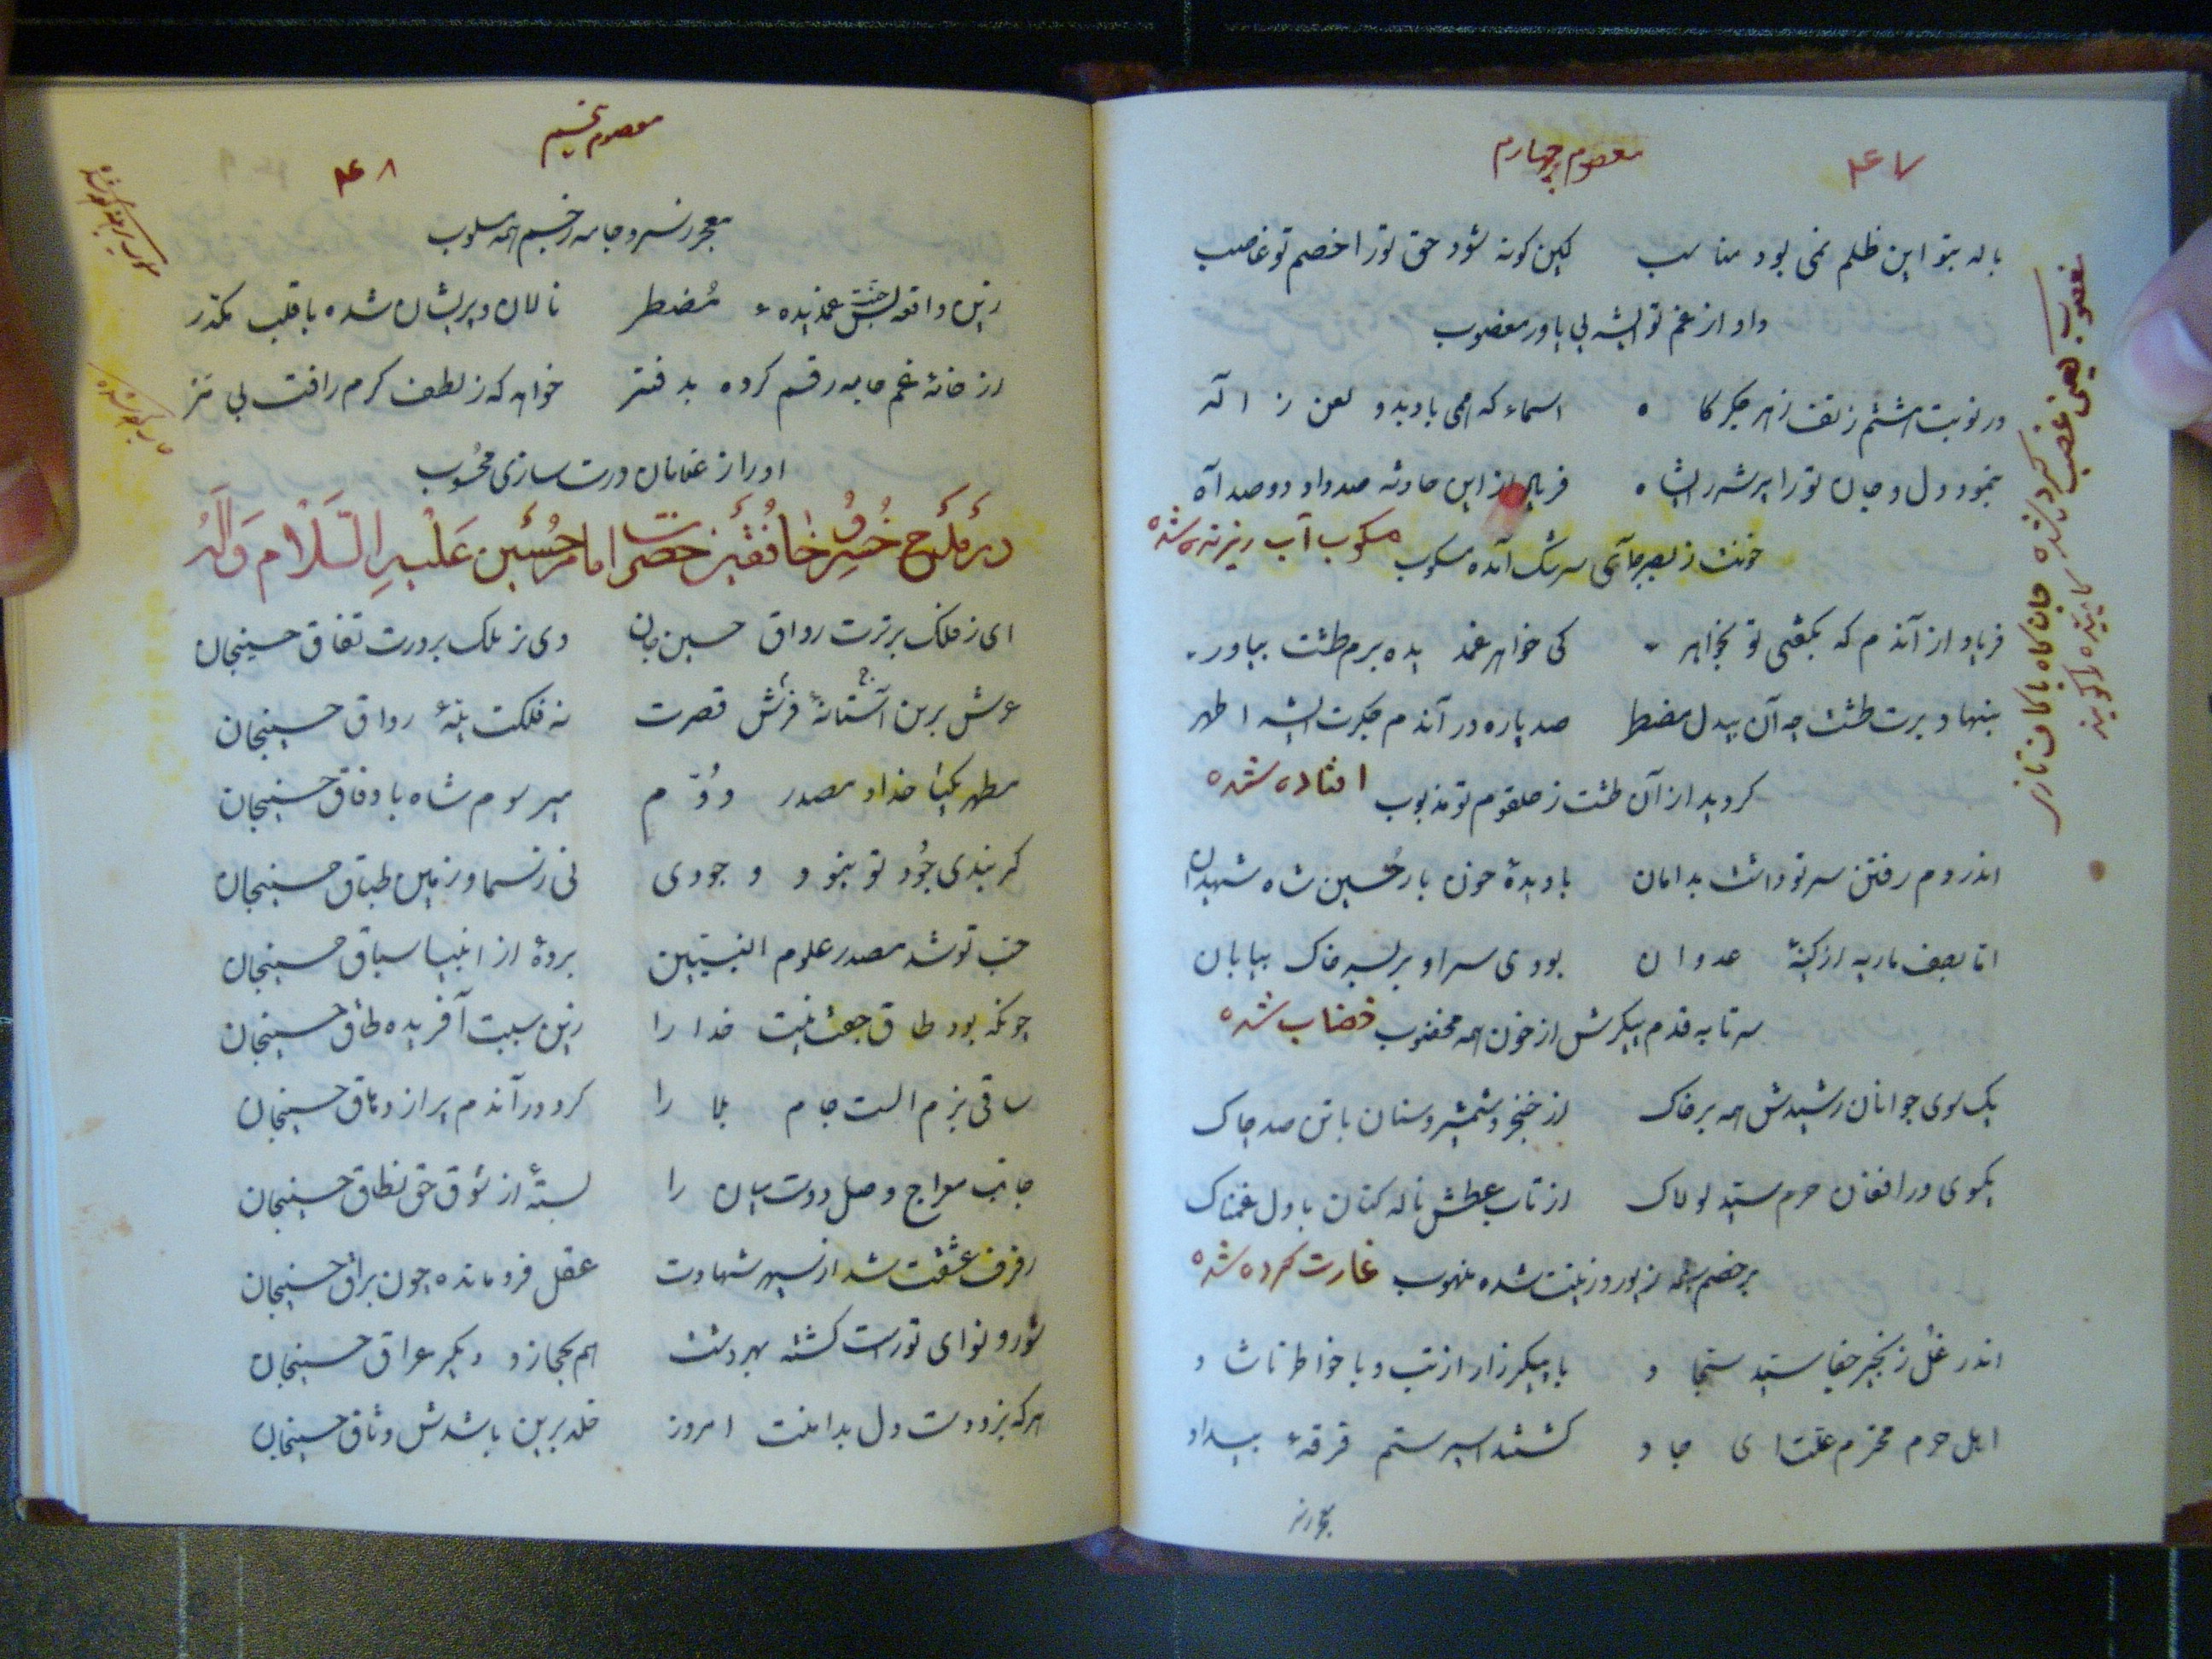 ۴۷
معصوم چهارم
بالله بتو این ظلم نمی بود مناسب کین کونه شود حق تو را خصم تو غاصب
داد از غم تو ایشه بی یاور مغضوب
در نوبت هشتم ز تف زهر جگر کاه اسماء که همی باد بدو لعن ز اله
بنمود دل و جان تو را پر شرر ایشاه فریاد از این حادثه صد داد دو صد آه
خونت ز بصر جای سرشک آمده مسکوب
مسکوب آب ریزنده شده
فریاد از آندم که بگفتی تو بخواهر کی خواهر غمدیده برم طشت بیاور
بنهاد برت طشت چه آن بیدل مضطر صد پاره در آندم جگرت ایشه اطهر
کردید از آن طشت ز حلقوم تو مذبوب
افتاده شده
اندر دم رفتن سر تو داشت بدامان با دیدهٔ خون بار حسین شاه شهیدان
اما بصف ماریه از کینهٔ عدوان بودی سر او بر بسر خاک بیابان
سر تا به قدم پیکرش از خون همه مخضوب
خضاب شده
یک سوی جوانان رشیدش همه بر خاک از خنجر و شمشیر و سنان با تن صد چاک
یکسوی در افغان حرم سید لولاک از تاب عطش ناله کنان با دل غمناک
بر خصم همه زیور و زینت شده منهوب
غارت کرده شده
اندر غل زنجیر جفا سید سجاد با پیکر زار از تب و با خواطر ناشاد
اهل حرم محترم علت ایجاد کشتند اسیر ستم فرقهٔ بیداد
معجر ز
مغصوب یعنی غصب کرده شده جان کاه با کاف تازی
معصوم پنجم
۴۸
معجر ز سر و جامه ز جسم همه مسلوب
زین واقعه غمدیده مضطر نالان و پریشان شده با قلب مکدر
از خانهٔ غم جامه رقم کرده بدفتر خواهد که ز لطف کرم رافت بی مر
او را ز غلامان درت سازی محسوب
در مدح خسرو خافقین حضرت امام حسین علیه السلام واله
ای ز فلک برترت رواق حسین جان وی ز ملک بر درت تفاق حسینجان
عرش برین آستانهٔ فرش قصرت نه فلکت پلهٔ رواق حسینجان
مظهر یکتا خداد مصدر دوم میر سوم شاه با وفاق حسینجان
کر نبدی جود تو نبود وجودی نی ز سما و زمین طباق حسینجان
حب تو شد مصدر علوم النبیین بردهٔ از انبیا سباق حسینجان
چونکه بود طاق جفت نیت خدا را زین سببت آفریده طاق حسینجان
ساقی بزم الست جام بلا را کرد در آندم پر از وثاق حسینجان
جانب معراج وصل دوست میان را بستهٔ از شوق حق نطاق حسینجان
رفرف عشقت شد از سپهر شهادت عقل فرو مانده چون براق حسینجان
شور و نوای تو راست کشته بهر دشت هم بحجاز و دیگر عراق حسینجان
هر که بزد دست دل بدامنت امروز خلد برین باشدش وثاق حسینجان